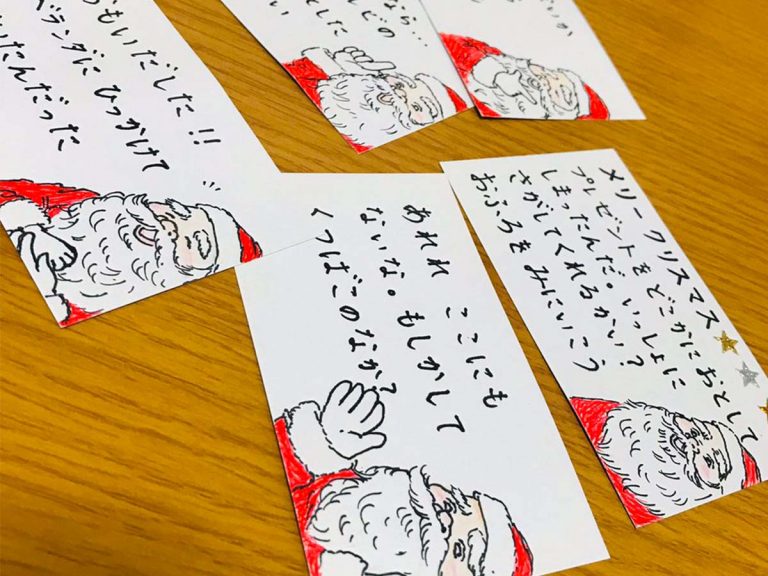 メリークリスマス
プレゼントをどこかにおとして
しまったんだ。いっしょに
さがしてくれるかい?
おふろを みにいこう
あれれ ここにも
ないな。もしかして
くつばこのなか?
もいだした!!
ベランダに ひっかけて
いたんだった
なら…
の
した
い
か